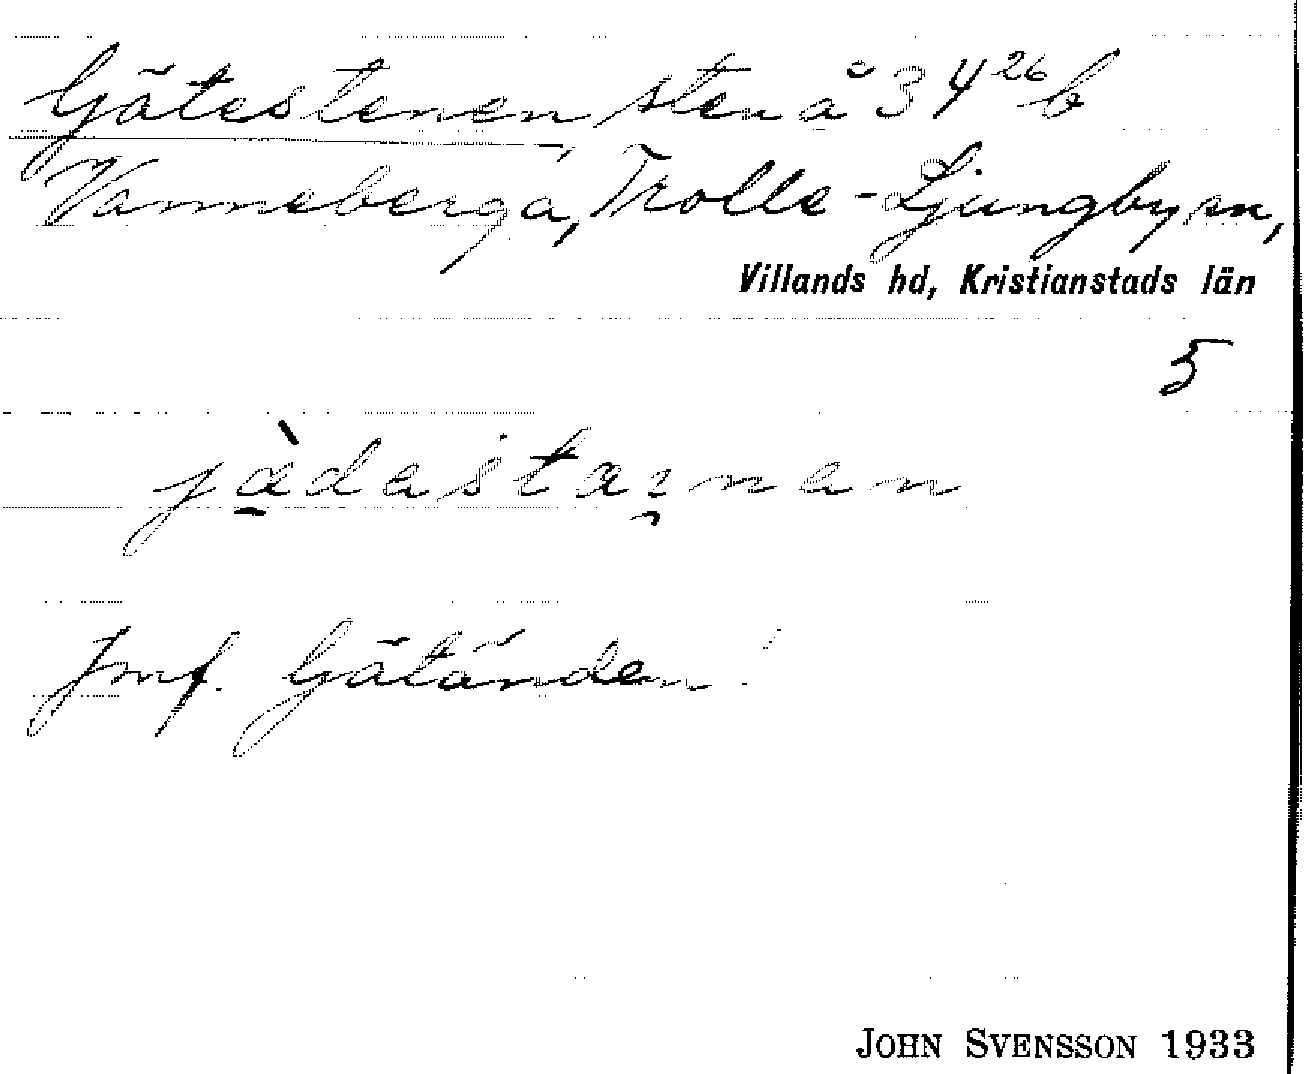 Gätestenen, sten å 34²⁶b
Vanneberga, Trolle-Ljungby sn,
Villands hd, Kristianstads län
5
Jmf. Gätänden!
JOHN SVENSSON 1933